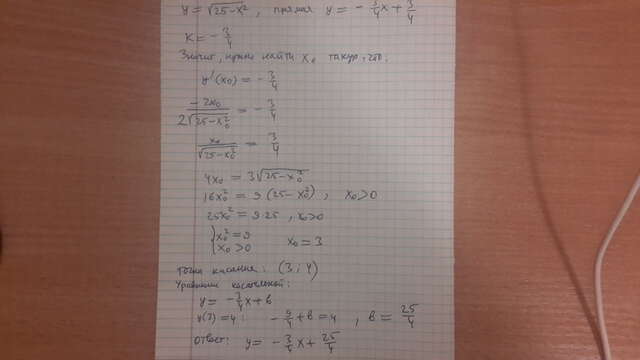 y = √25-x², прямая y = - 3/4 x + 3/4
K = - 3/4
Значит, нужно найти x₀ такую, что:
y'(x₀) = - 3/4
-2x₀ / 2√25-x₀² = - 3/4
x₀ / √25-x₀² = 3/4
4x₀ = 3√25-x₀²
16x₀² = 9(25-x₀²), x₀>0
25x₀² = 9·25, x₀>0
{ x₀² = 9
x₀ > 0 x₀ = 3
Точка касания: (3; 4)
Уравнение касательной:
y = - 3/4 x + b
y(3) = 4: - 9/4 + b = 4, b = 25/4
Ответ: y = - 3/4 x + 25/4